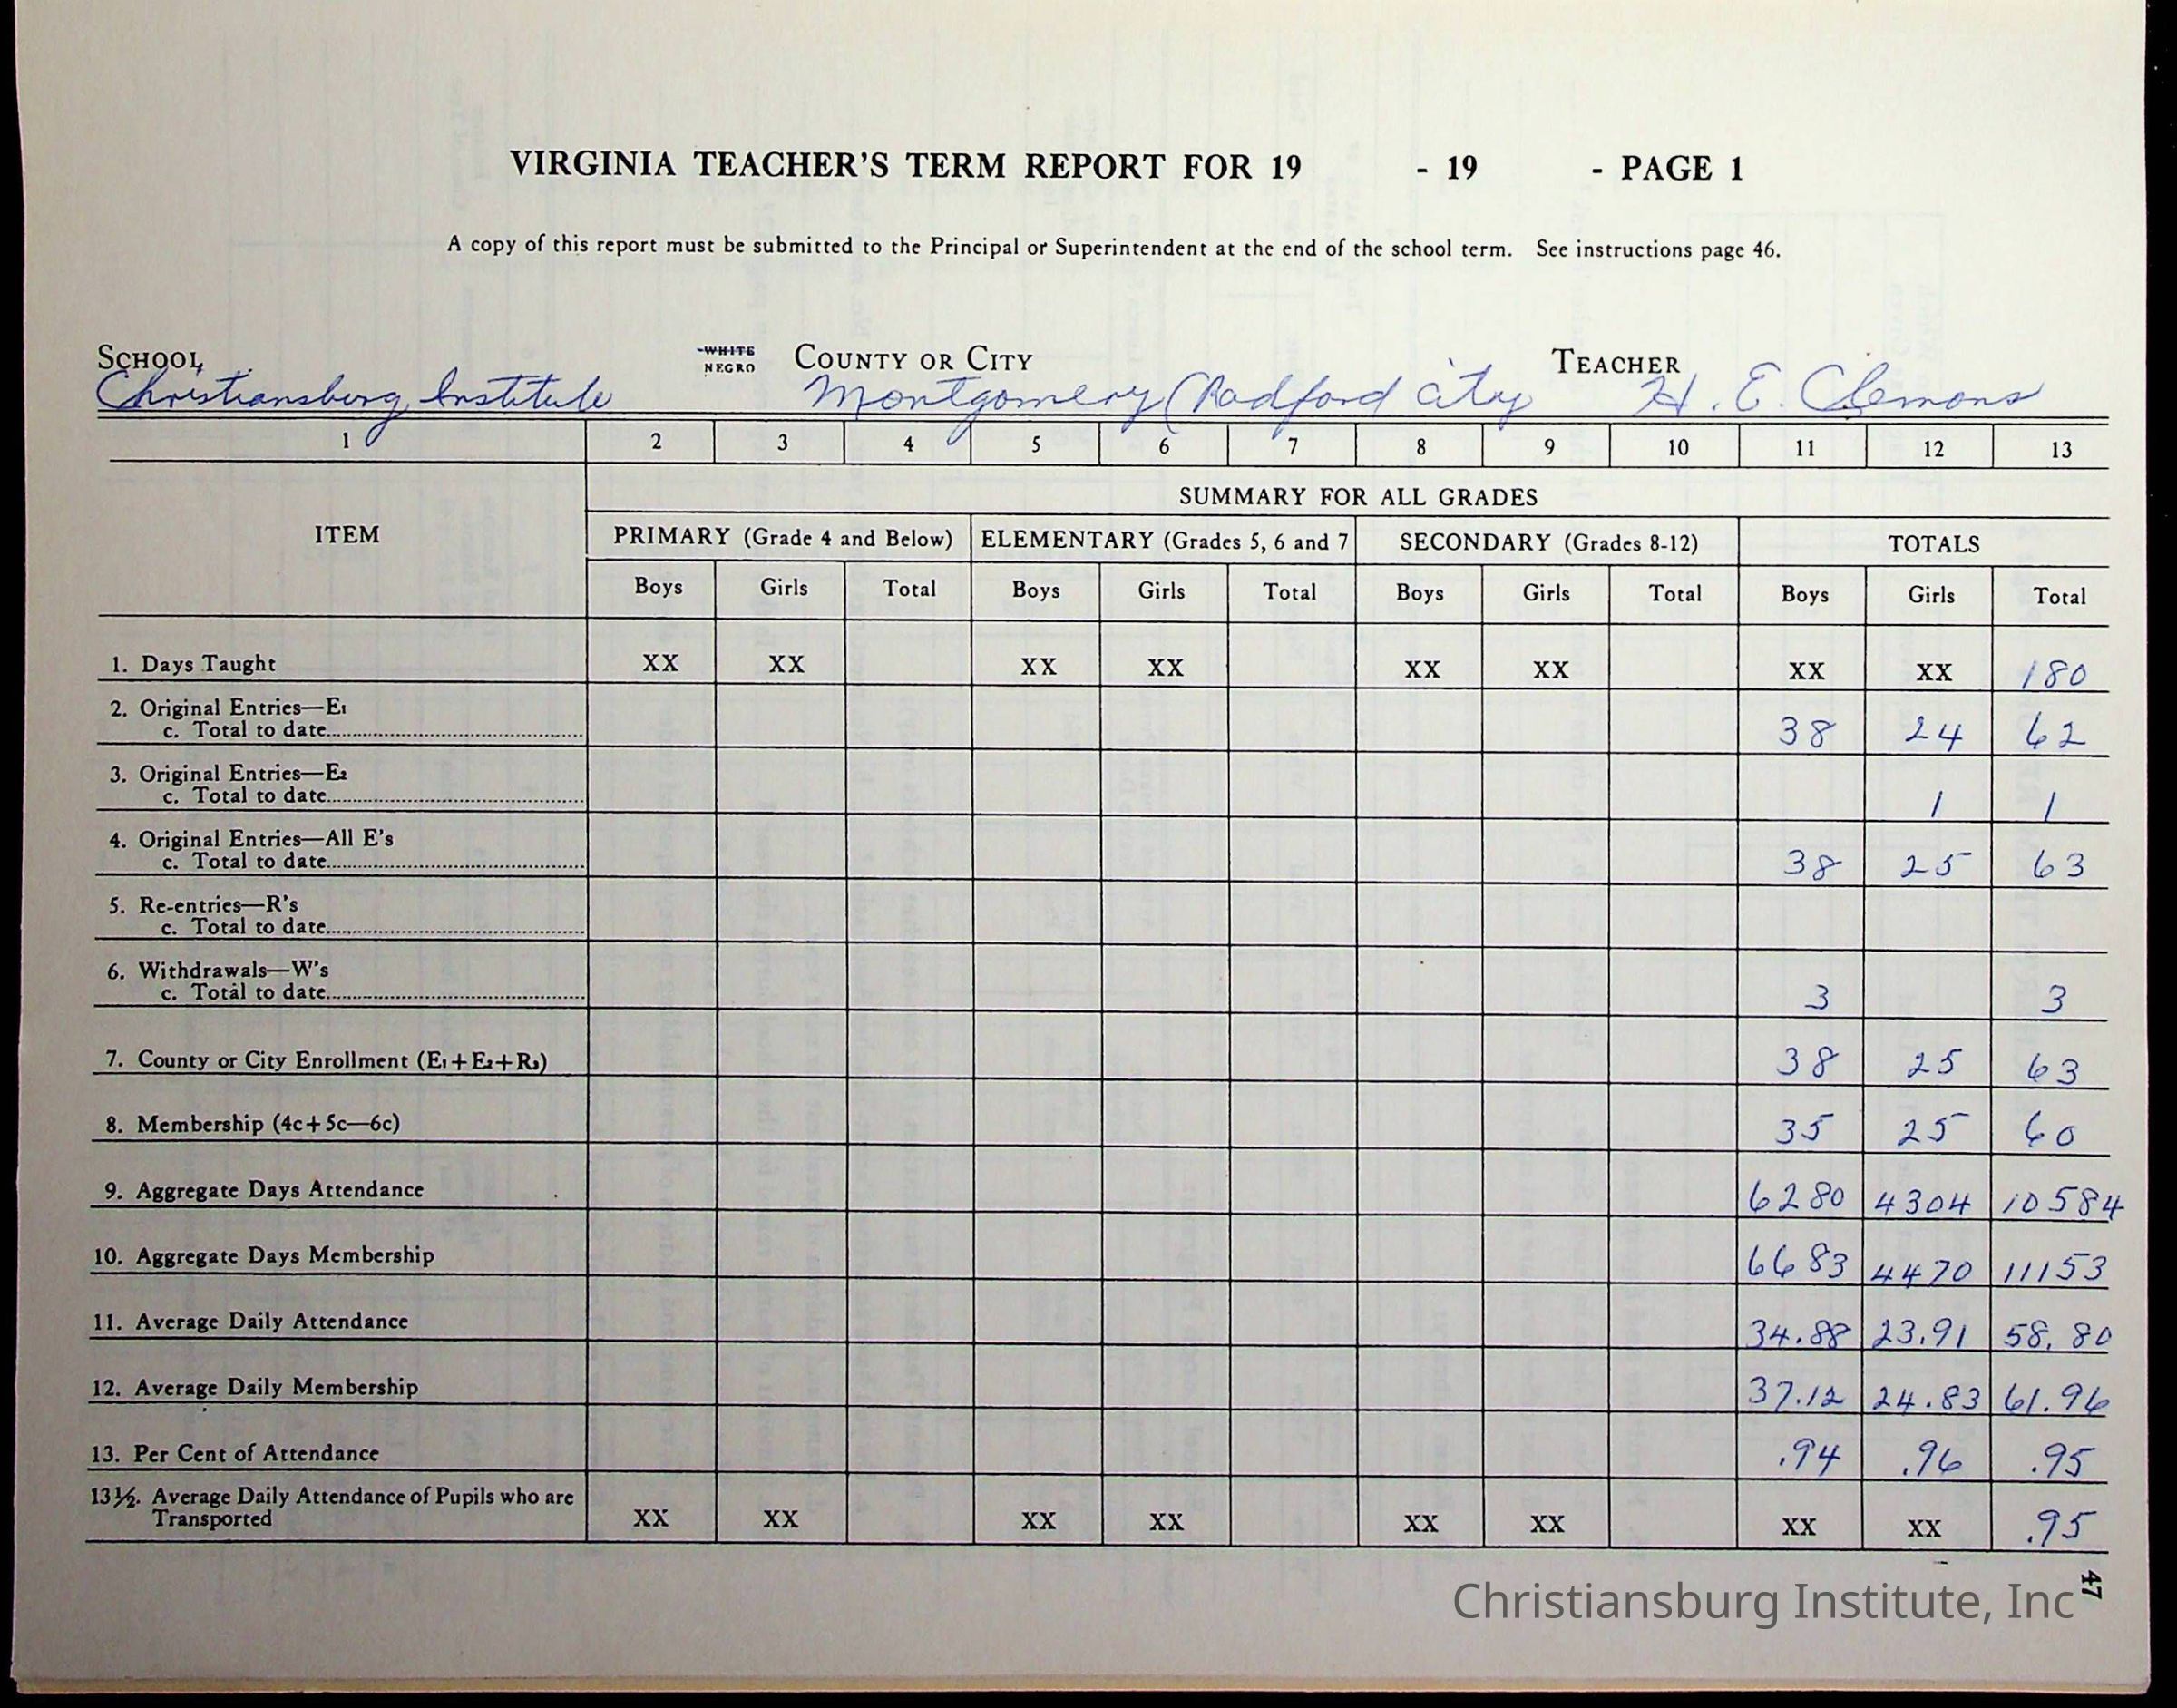 VIRGINIA TEACHER'S TERM REPORT FOR 19 - 19 - PAGE 1
A copy of this report must be submitted to the Principal or Superintendent at the end of the school term. See instructions page 46.
SCHOOL WHITE NEGRO COUNTY OR CITY TEACHER
Christiansburg Institute Montgomery (Radford City H. E. Clemons
1 2 3 4 5 6 7 8 9 10 11 12 13
SUMMARY FOR ALL GRADES
ITEM PRIMARY (Grade 4 and Below) ELEMENTARY (Grades 5, 6 and 7 SECONDARY (Grades 8-12) TOTALS
Boys Girls Total Boys Girls Total Boys Girls Total Boys Girls Total
1. Days Taught XX XX XX XX XX XX XX XX 180
2. Original Entries—E1
c. Total to date 38 24 62
3. Original Entries—E2
c. Total to date 1 1
4. Original Entries—All E's
c. Total to date 38 25 63
5. Re-entries—R's
c. Total to date
6. Withdrawals—W's
c. Total to date 3 3
7. County or City Enrollment (E1+E2+R3) 38 25 63
8. Membership (4c+5c—6c) 35 25 60
9. Aggregate Days Attendance 6280 4304 10584
10. Aggregate Days Membership 6683 4470 11153
11. Average Daily Attendance 34.88 23.91 58.80
12. Average Daily Membership 37.12 24.83 61.96
13. Per Cent of Attendance .94 .96 .95
13½. Average Daily Attendance of Pupils who are
Transported XX XX XX XX XX XX XX XX .95
47
Christiansburg Institute, Inc